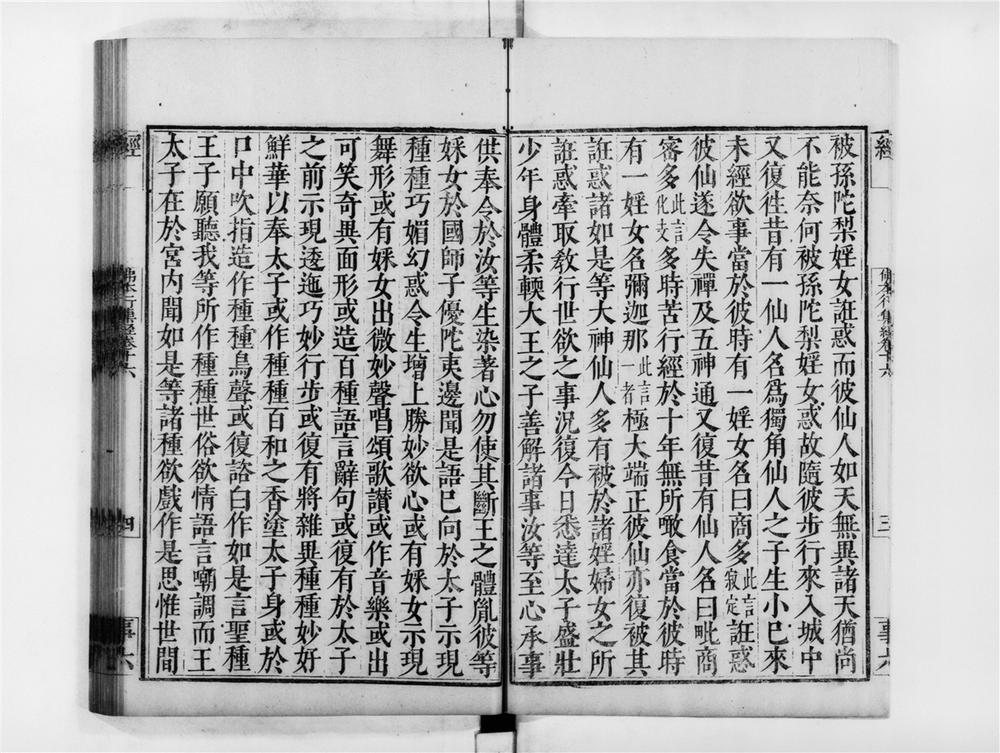 被孫陀梨婬女誑惑而彼仙人如天無異諸天猶尚
不能奈何被孫陀梨婬女惑故隨彼步行來入城中
又復徃昔有一仙人名爲獨角仙人之子生小已來
未經欲事當於彼時有一婬女名曰商多此言寂定誑惑
彼仙遂令失禪及五神通又復昔有仙人名曰毗商
審多此言化支多時苦行經於十年無所噉食當於彼時
有一婬女名彌迦那此言一者極大端正彼仙亦復被其
誑惑諸如是等大神仙人多有被於諸婬婦女之所
誑惑牽取敎行世欲之事況復今日悉達太子盛壯
少年身體柔輭大王之子善解諸事汝等至心承事
供奉令於汝等生染著心勿使其斷王之體胤彼等
婇女於國師子優陀夷邊聞是語已向於太子示現
種種巧媚幻惑令生增上勝妙欲心或有婇女示現
舞形或有婇女出微妙聲唱頌歌讃或作音樂或出
可笑奇異面形或造百種語言辭句或復有於太子
之前示現逶迤巧妙行步或復有將雜異種種妙好
鮮華以奉太子或作種種百和之香塗太子身或於
口中吹指造作種種鳥聲或復諮白作如是言聖種
王子願聽我等所作種種世俗欲情語言嘲調而王
太子在於宮内聞如是等諸種欲戲作是思惟世間
經
佛本行集經卷十六
三
事六
經
佛本行集經卷十六
四
事六